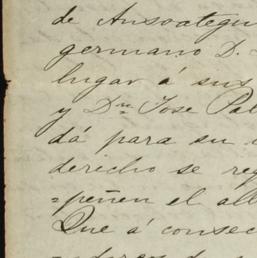 de Ansoategui
germano D.
lugar á sus
y Dn. Jose Pal
dá para su
derecho se reg
=peñen el alb
Que á consec